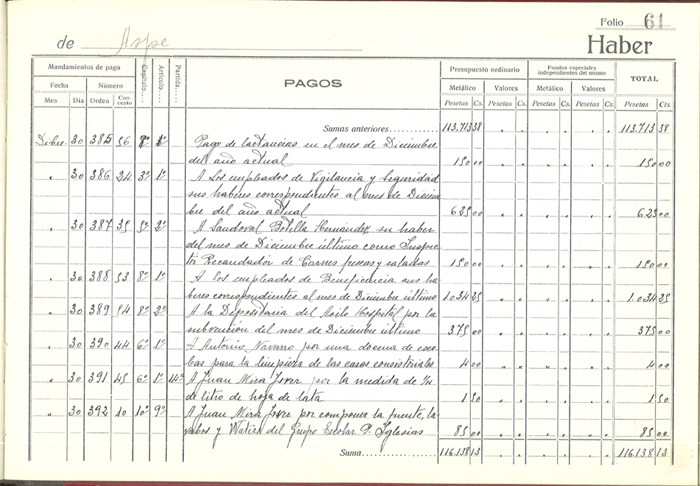 Folio 61
de Aspe Haber
Mandamientos de pago Capítulo Artículo Partida PAGOS Presupuesto ordinario Fondos especiales independientes del mismo TOTAL
Fecha Número Metálico Valores Metálico Valores
Mes Día Orden Concepto Pesetas Cs. Pesetas Cs. Pesetas Cs.
Sumas anteriores 113.713 38 113.713 38
Dibre 30 385 56 8º 1º Pago de lactancias en el mes de Diciembre
del año actual 150 00 150 00
" 30 386 24 3º 1º A los empleados de Vigilancia y Seguridad
sus haberes correspondientes al mes de Diciem
bre del año actual 625 00 625 00
" 30 387 35 5º 2º A Sandoval Botella Hernández su haber
del mes de Diciembre último como Inspec
Recaudador de Carnes frescas y saladas 150 00 150 00
" 30 388 53 8º 1º A los empleados de Beneficencia sus ha
beres correspondientes al mes de Diciembre último 1.034 25 1.034 25
" 30 389 54 8º 2º A la Depositaria del Asilo Hospital por la
subvención del mes de Diciembre último 375 00 375 00
" 30 390 44 6º 1º A Antonio Navarro por una docena de esco
bas para la limpieza de las casas consistoriales 4 00 4 00
" 30 391 45 6º 1º 14º A Juan Mira Jover por la medida de ½
de litro de hoja de lata 1 50 1 50
" 30 392 10º 9º A Juan Mira Jover por componer la fuente, la
vabos y Waters del Grupo Escolar P. Iglesias 85 00 85 00
Suma 116.138 13 116.138 13